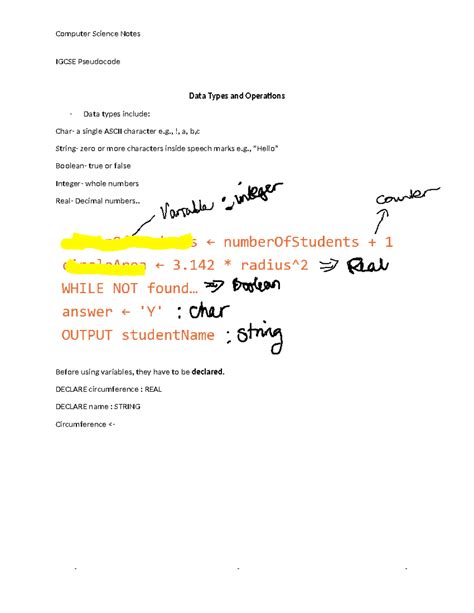 Computer Science Notes
IGCSE Pseudocode
Data Types and Operations
- Data types include:
Char- a single ASCII character e.g., !, a, b,c
String- zero or more characters inside speech marks e.g., "Hello"
Boolean- true or false
Integer- whole numbers
Real- Decimal numbers..
Variable : integer
counter
← numberOfStudents + 1
← 3.142 * radius^2 ⇒ Real
WHILE NOT found… ⇒ Boolean
answer ← 'Y' : char
OUTPUT studentName : string
Before using variables, they have to be declared.
DECLARE circumference : REAL
DECLARE name : STRING
Circumference <-